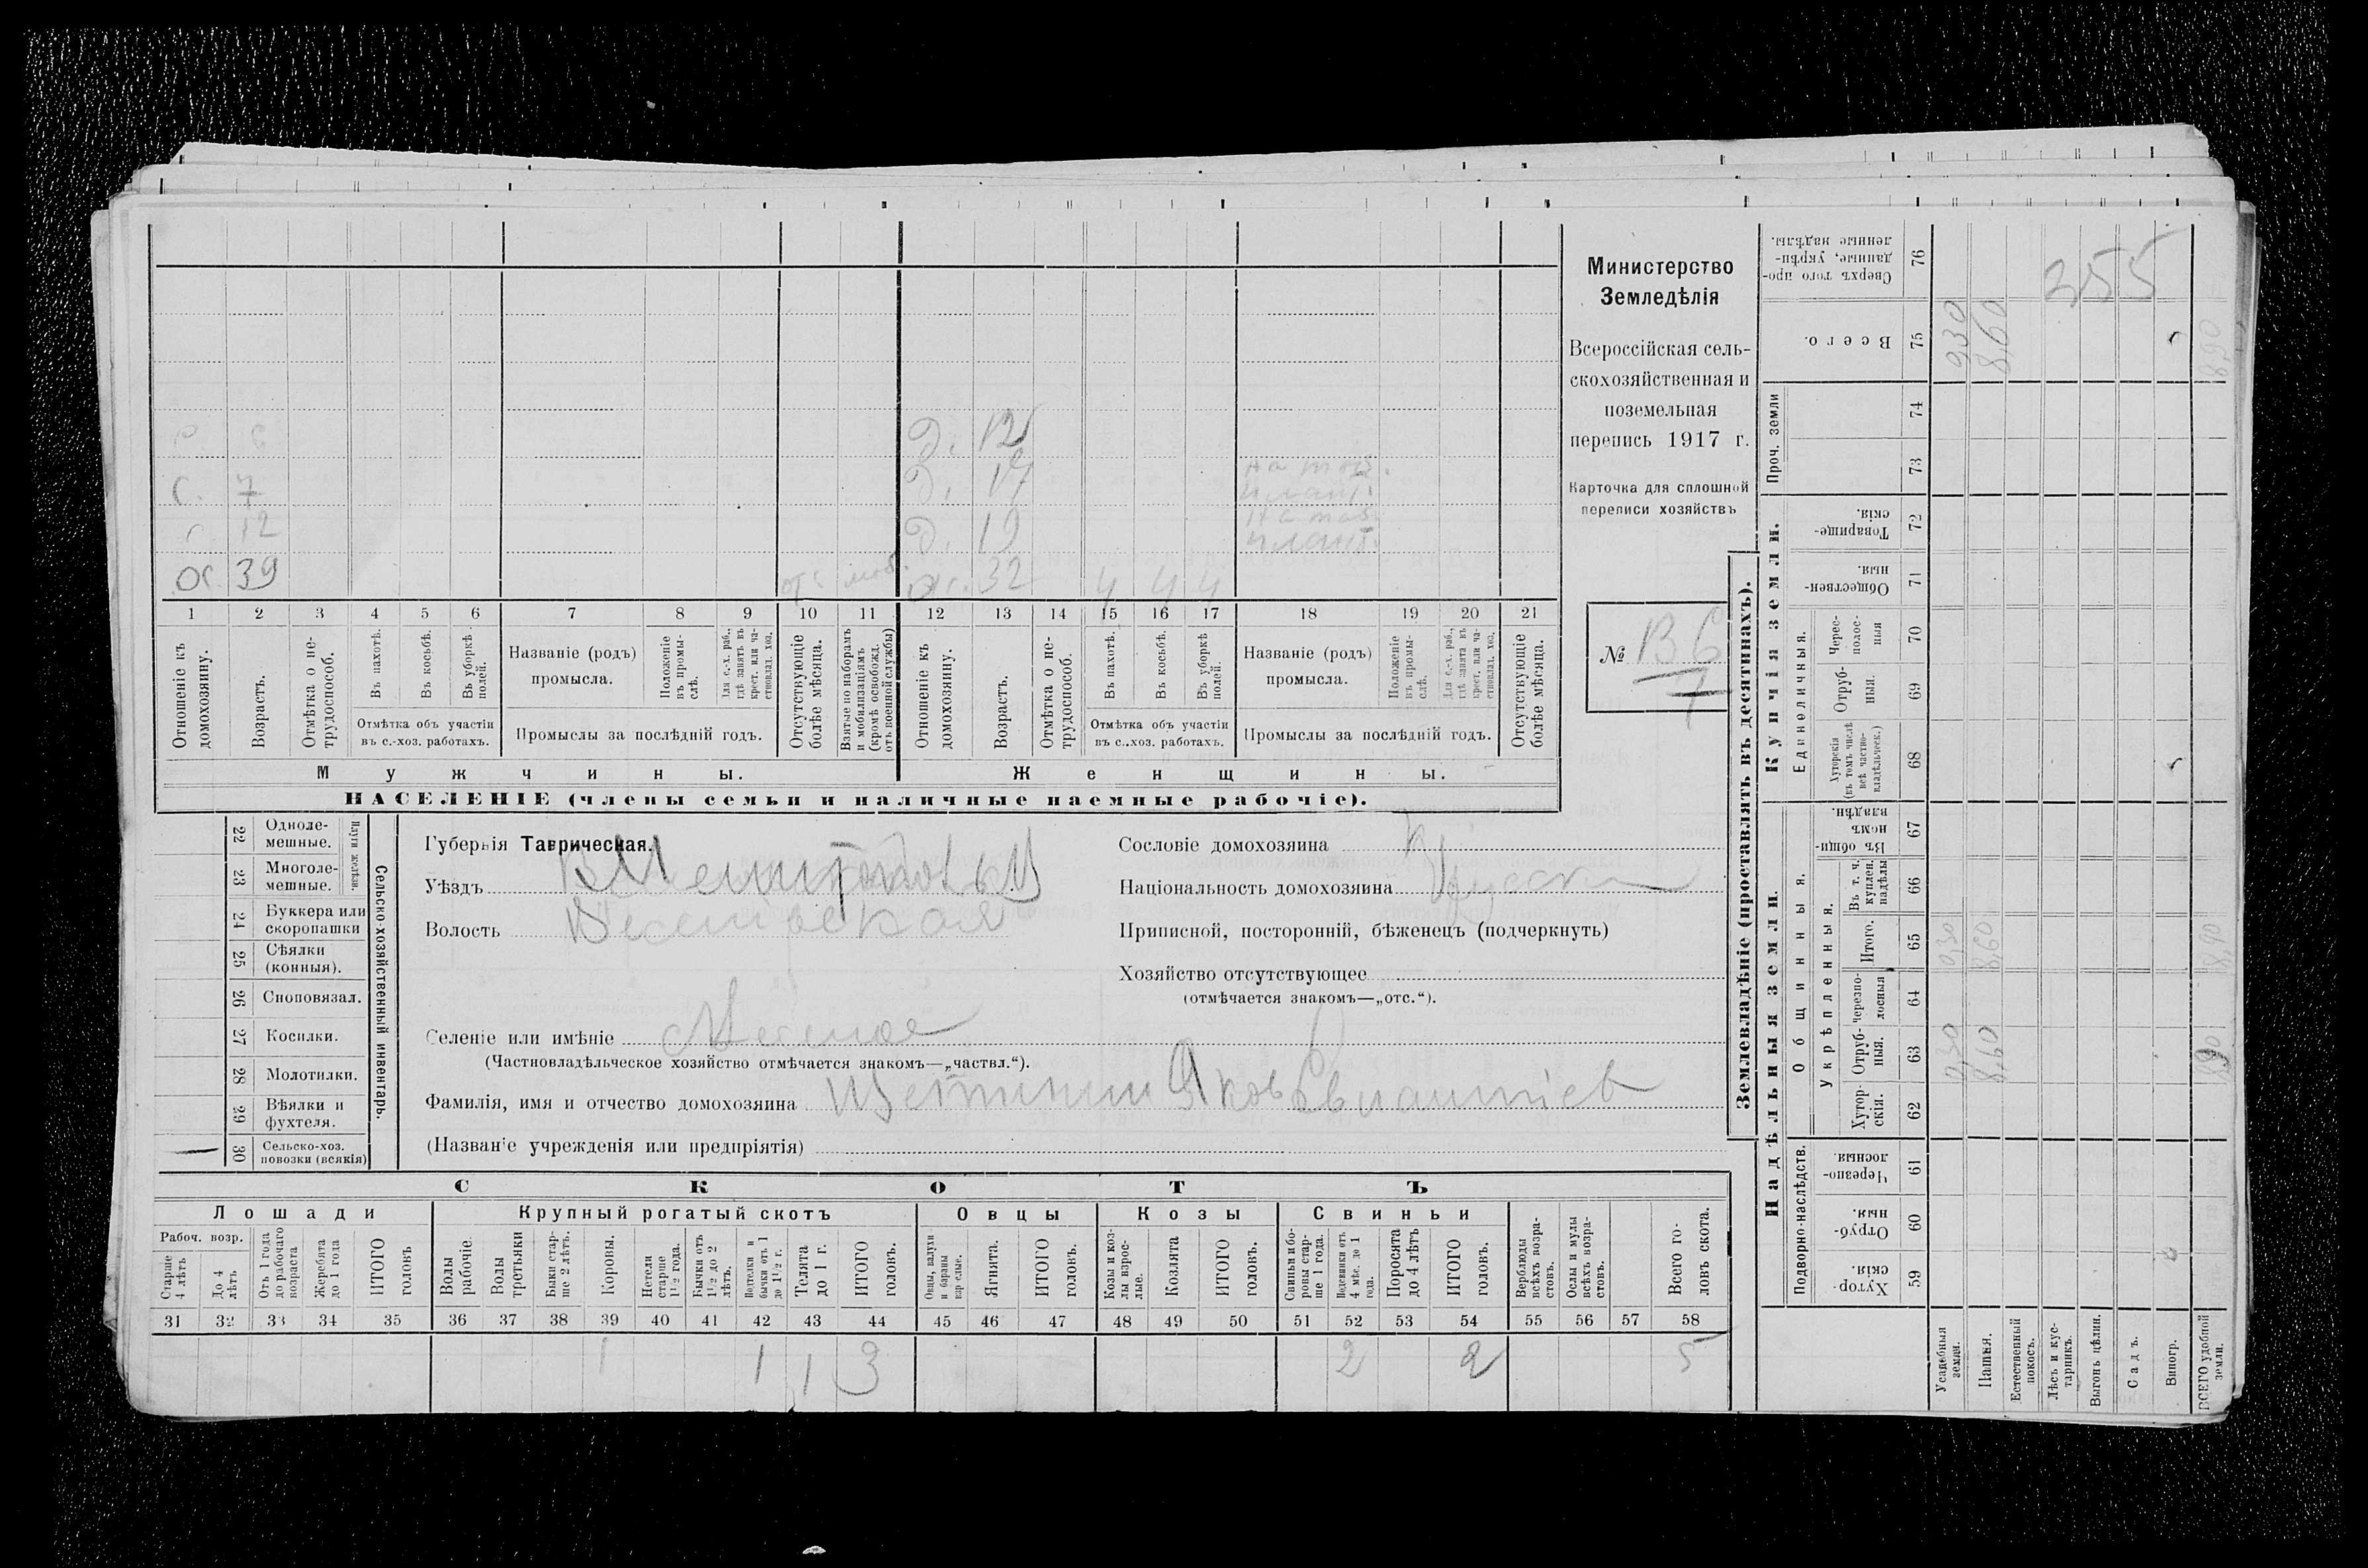 Министерство
Земледѣлія
Всероссійская сель-
скохозяйственная и
поземельная
перепись 1917 г.
Карточка для сплошной
переписи хозяйствъ
№ В6
7
с. 6 д. 12
с. 7 д. 17 на таб. плант.
с. 12 д. 19 на таб. плант.
ох. 39 моб. 32 ч ч ч
1 2 3 4 5 6 7 8 9 10 11 12 13 14 15 16 17 18 19 20 21
Отношеніе къ домохозяину.
Возрастъ.
Отмѣтка о не-трудоспособ.
Въ пахотѣ.
Въ косьбѣ.
Въ уборкѣ полей.
Отмѣтка объ участіи въ с.-хоз. работахъ.
Названіе (родъ) промысла.
Положеніе въ промы-слѣ.
Для с.-х. раб., гдѣ занятъ въ крест. или ча-стновлад. хоз.
Промыслы за послѣдній годъ.
Отсутствующіе болѣе мѣсяца.
Взятые по наборамъ и мобилизаціямъ (кромѣ освобожд. отъ военной службы)
Отношеніе къ домохозяину.
Возрастъ.
Отмѣтка о не-трудоспособ.
Въ пахотѣ.
Въ косьбѣ.
Въ уборкѣ полей.
Отмѣтка объ участіи въ с.-хоз. работахъ.
Названіе (родъ) промысла.
Положеніе въ промы-слѣ.
Для с.-х. раб., гдѣ занята въ крест. или ча-стновлад. хоз.
Промыслы за послѣдній годъ.
Отсутствующіе болѣе мѣсяца.
Мужчины. Женщины.
НАСЕЛЕНІЕ (члены семьи и наличные наемные рабочіе).
22 Одноле-мешные.
23 Многоле-мешные.
Плуги желѣзн.
24 Буккера или скоропашки
25 Сѣялки (конныя).
26 Сноповязал.
27 Косилки.
28 Молотилки.
29 Вѣялки и фухтеля.
30 Сельско-хоз. повозки (всякія)
Сельско-хозяйственный инвентарь.
Губернія Таврическая.
Уѣздъ
Волость
Селеніе или имѣніе
(Частновладѣльческое хозяйство отмѣчается знакомъ—„частвл.“).
Фамилія, имя и отчество домохозяина Щетинин Яков
(Названіе учрежденія или предпріятія)
Сословіе домохозяина к
Національность домохозяина
Приписной, посторонній, бѣженецъ (подчеркнуть)
Хозяйство отсутствующее
(отмѣчается знакомъ—„отс.“).
СКОТЪ
Лошади
Рабоч. возр.
Старше 4 лѣтъ
До 4 лѣтъ
Отъ 1 года до рабочаго возраста
Жеребята до 1 года
ИТОГО головъ
Крупный рогатый скотъ
Волы рабочіе.
Волы третьяки
Быки стар-ше 2 лѣтъ.
Коровы.
Нетели старше 1½ года.
Бычки отъ 1½ до 2 лѣтъ.
Нетелки и бычки отъ 1 до 1½ г.
Телята до 1 г.
ИТОГО головъ.
Овцы
Овцы, валухи и бараны взрослые.
Ягнята.
ИТОГО головъ.
Козы
Козы и коз-лы взрос-лые.
Козлята
ИТОГО головъ.
Свиньи
Свиньи и бо-ровы стар-ше 1 года.
Подсвинки отъ 4 мѣс. до 1 года.
Поросята до 4 лѣтъ
ИТОГО головъ.
Верблюды всѣхъ возра-стовъ.
Ослы и мулы всѣхъ возра-стовъ.
Всего го-ловъ скота.
31 32 33 34 35 36 37 38 39 40 41 42 43 44 45 46 47 48 49 50 51 52 53 54 55 56 57 58
1 1 1 3 2 2 5
Землевладѣніе (проставлять въ десятинахъ).
Купчія земли.
Надѣльныя земли.
Сверхъ того про-данные, укрѣп-ленные надѣлы. 76 255
Всего. 75 0,30 8,60 8,90
Проч. земли
74
73
Товарище-скія. 72
Обществен-ныя. 71
Единоличныя.
Черес-полос-ныя 70
Отруб-ныя. 69
Хуторскія (въ томъ числѣ всѣ частно-владѣльческ.) 68
Общинныя.
Въ общин-номъ владѣн. 67
Укрѣпленныя.
Въ т. ч. куплен. надѣлы 66
Итого. 65 0,30 8,60 8,90
Черезпо-лосныя 64
Отруб-ныя. 63 0,30 8,60 8,90
Хутор-скія. 62
Подворно-наслѣдств.
Черезпо-лосныя. 61
Отруб-ныя. 60
Хутор-скія. 59
Усадебныя земли.
Пашня.
Естественный покосъ.
Лѣсъ и кус-тарникъ.
Выгонъ цѣлин.
Садъ.
Виногр.
ВСЕГО удобной земли.